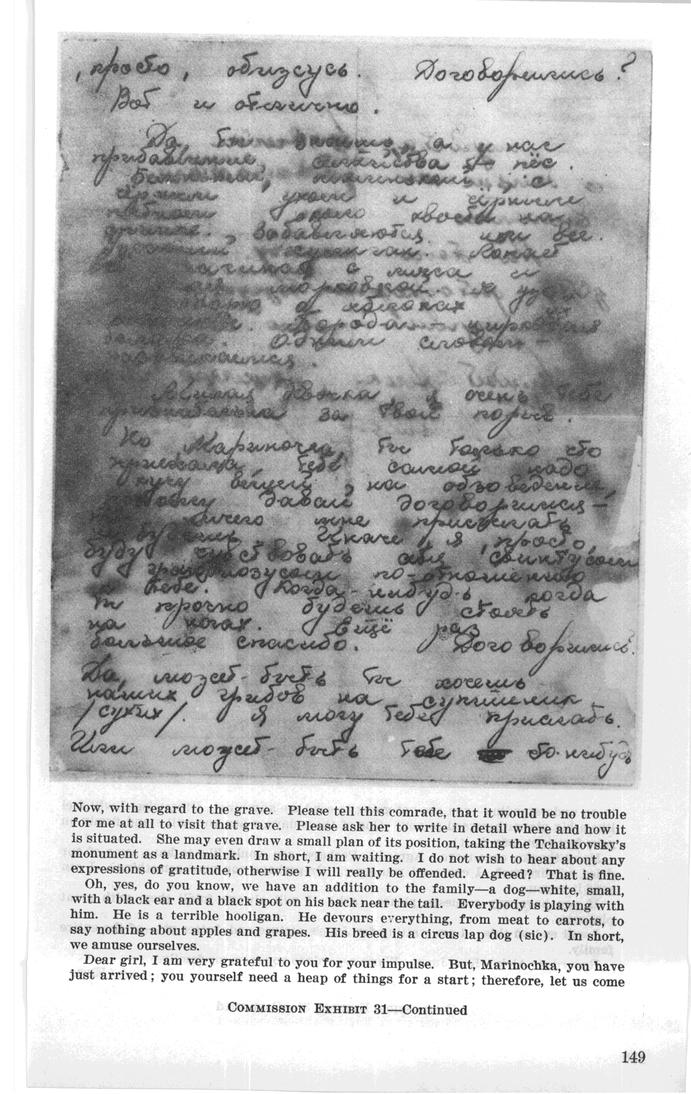 , просто, обижусь. Договорились?
Вот и отлично.
Да, ты знаешь, а у нас
прибавление семейства это пёс.
Беленький, маленький, с
чёрным ухом и чёрным
пятном около хвоста на
спинке. Забавляются им все.
хулиган. Лопает
начиная с мяса и
морковкой.
о яблоках
Порода цирковая
болонка. Одним словом -
развлекаемся.
Милая девочка, я очень тебе
признательна за твой порыв.
Но Мариночка, ты только что
приехала, тебе самой надо
кучу вещей, на обзаведение,
давай договоримся -
ничего мне присылать
не будешь. Иначе я, просто,
буду чувствовать себя свинтусом
грандиозусом по-отношению
к тебе. Когда-нибудь когда
ты прочно будешь стоять
на ногах. Ещё раз
большое спасибо. Договорились.
Да, может-быть ты хочешь
наших грибов на супишник
/сухих/. Я могу тебе прислать.
Или может-быть тебе что-нибудь
Now, with regard to the grave. Please tell this comrade, that it would be no trouble
for me at all to visit that grave. Please ask her to write in detail where and how it
is situated. She may even draw a small plan of its position, taking the Tchaikovsky's
monument as a landmark. In short, I am waiting. I do not wish to hear about any
expressions of gratitude, otherwise I will really be offended. Agreed? That is fine.
Oh, yes, do you know, we have an addition to the family—a dog—white, small,
with a black ear and a black spot on his back near the tail. Everybody is playing with
him. He is a terrible hooligan. He devours everything, from meat to carrots, to
say nothing about apples and grapes. His breed is a circus lap dog (sic). In short,
we amuse ourselves.
Dear girl, I am very grateful to you for your impulse. But, Marinochka, you have
just arrived; you yourself need a heap of things for a start; therefore, let us come
COMMISSION EXHIBIT 31—Continued
149